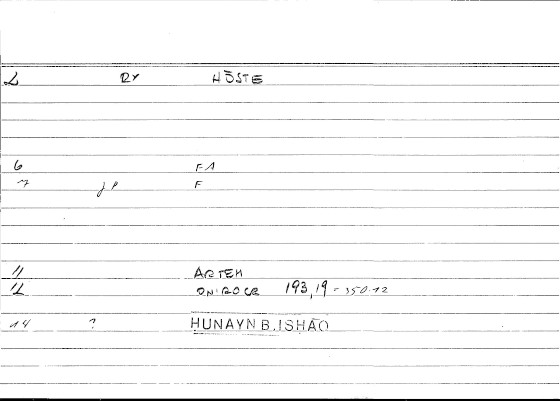 2 RY HŌSTE
6 FA
7 JP F
11 ARTEM
12 ONIROCR 193,19 = 350.12
14 ? HUNAYN B.ISHĀQ